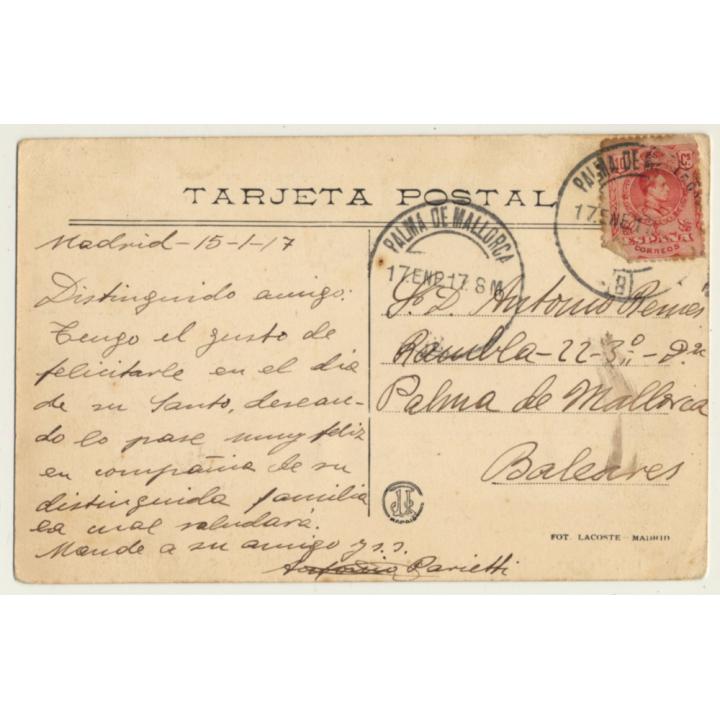 TARJETA POSTAL
Madrid-15-1-17
Distinguido amigo:
Tengo el gusto de
felicitarle en el dia
de su Santo, desean-
do lo pase muy feliz
en compañia de su
distinguida familia
la cual saludará.
Mande a su amigo y s.s.
Antonio Parietti
PALMA DE MALLORCA
17 ENE 17 8 M
PALMA DE
17 ENE 17
B
CORREOS
S. D. Antonio
Rambla-22-3º-
Palma de Mallorca
Baleares
MADRID
FOT. LACOSTE - MADRID